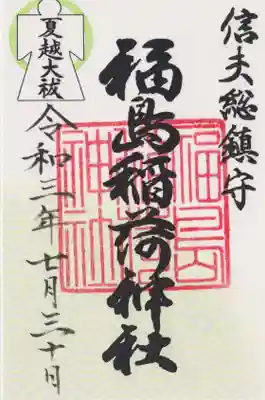 信夫総鎮守
福島稲荷神社
夏越大祓
令和三年七月三十日